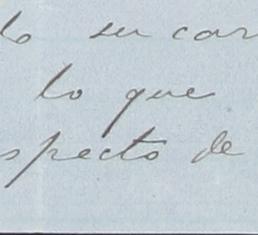 lo su car
lo que
specto de